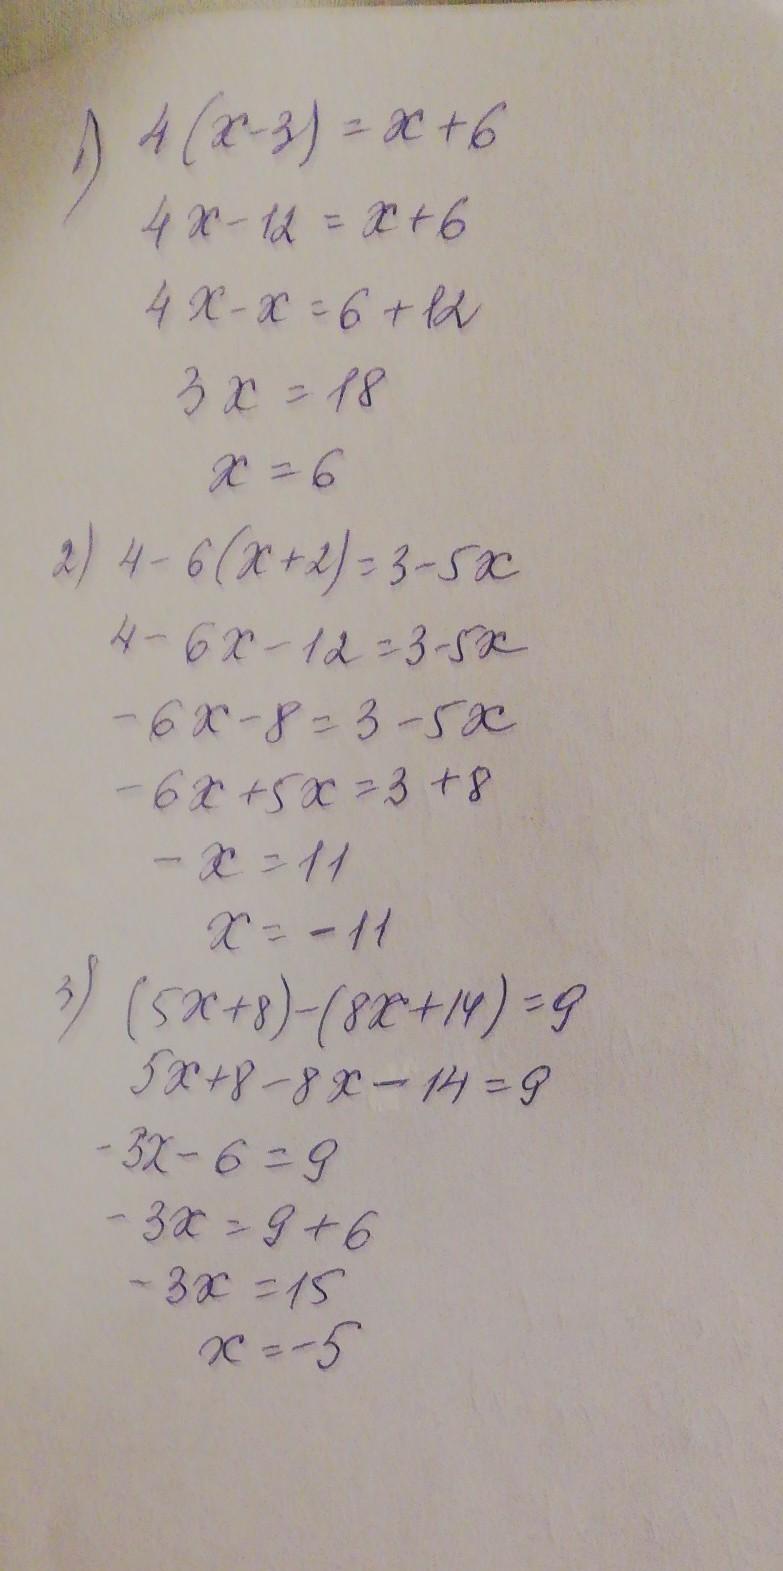 1) 4(x-3)=x+6
4x-12=x+6
4x-x=6+12
3x=18
x=6
2) 4-6(x+2)=3-5x
4-6x-12=3-5x
-6x-8=3-5x
-6x+5x=3+8
-x=11
x=-11
3) (5x+8)-(8x+14)=9
5x+8-8x-14=9
-3x-6=9
-3x=9+6
-3x=15
x=-5